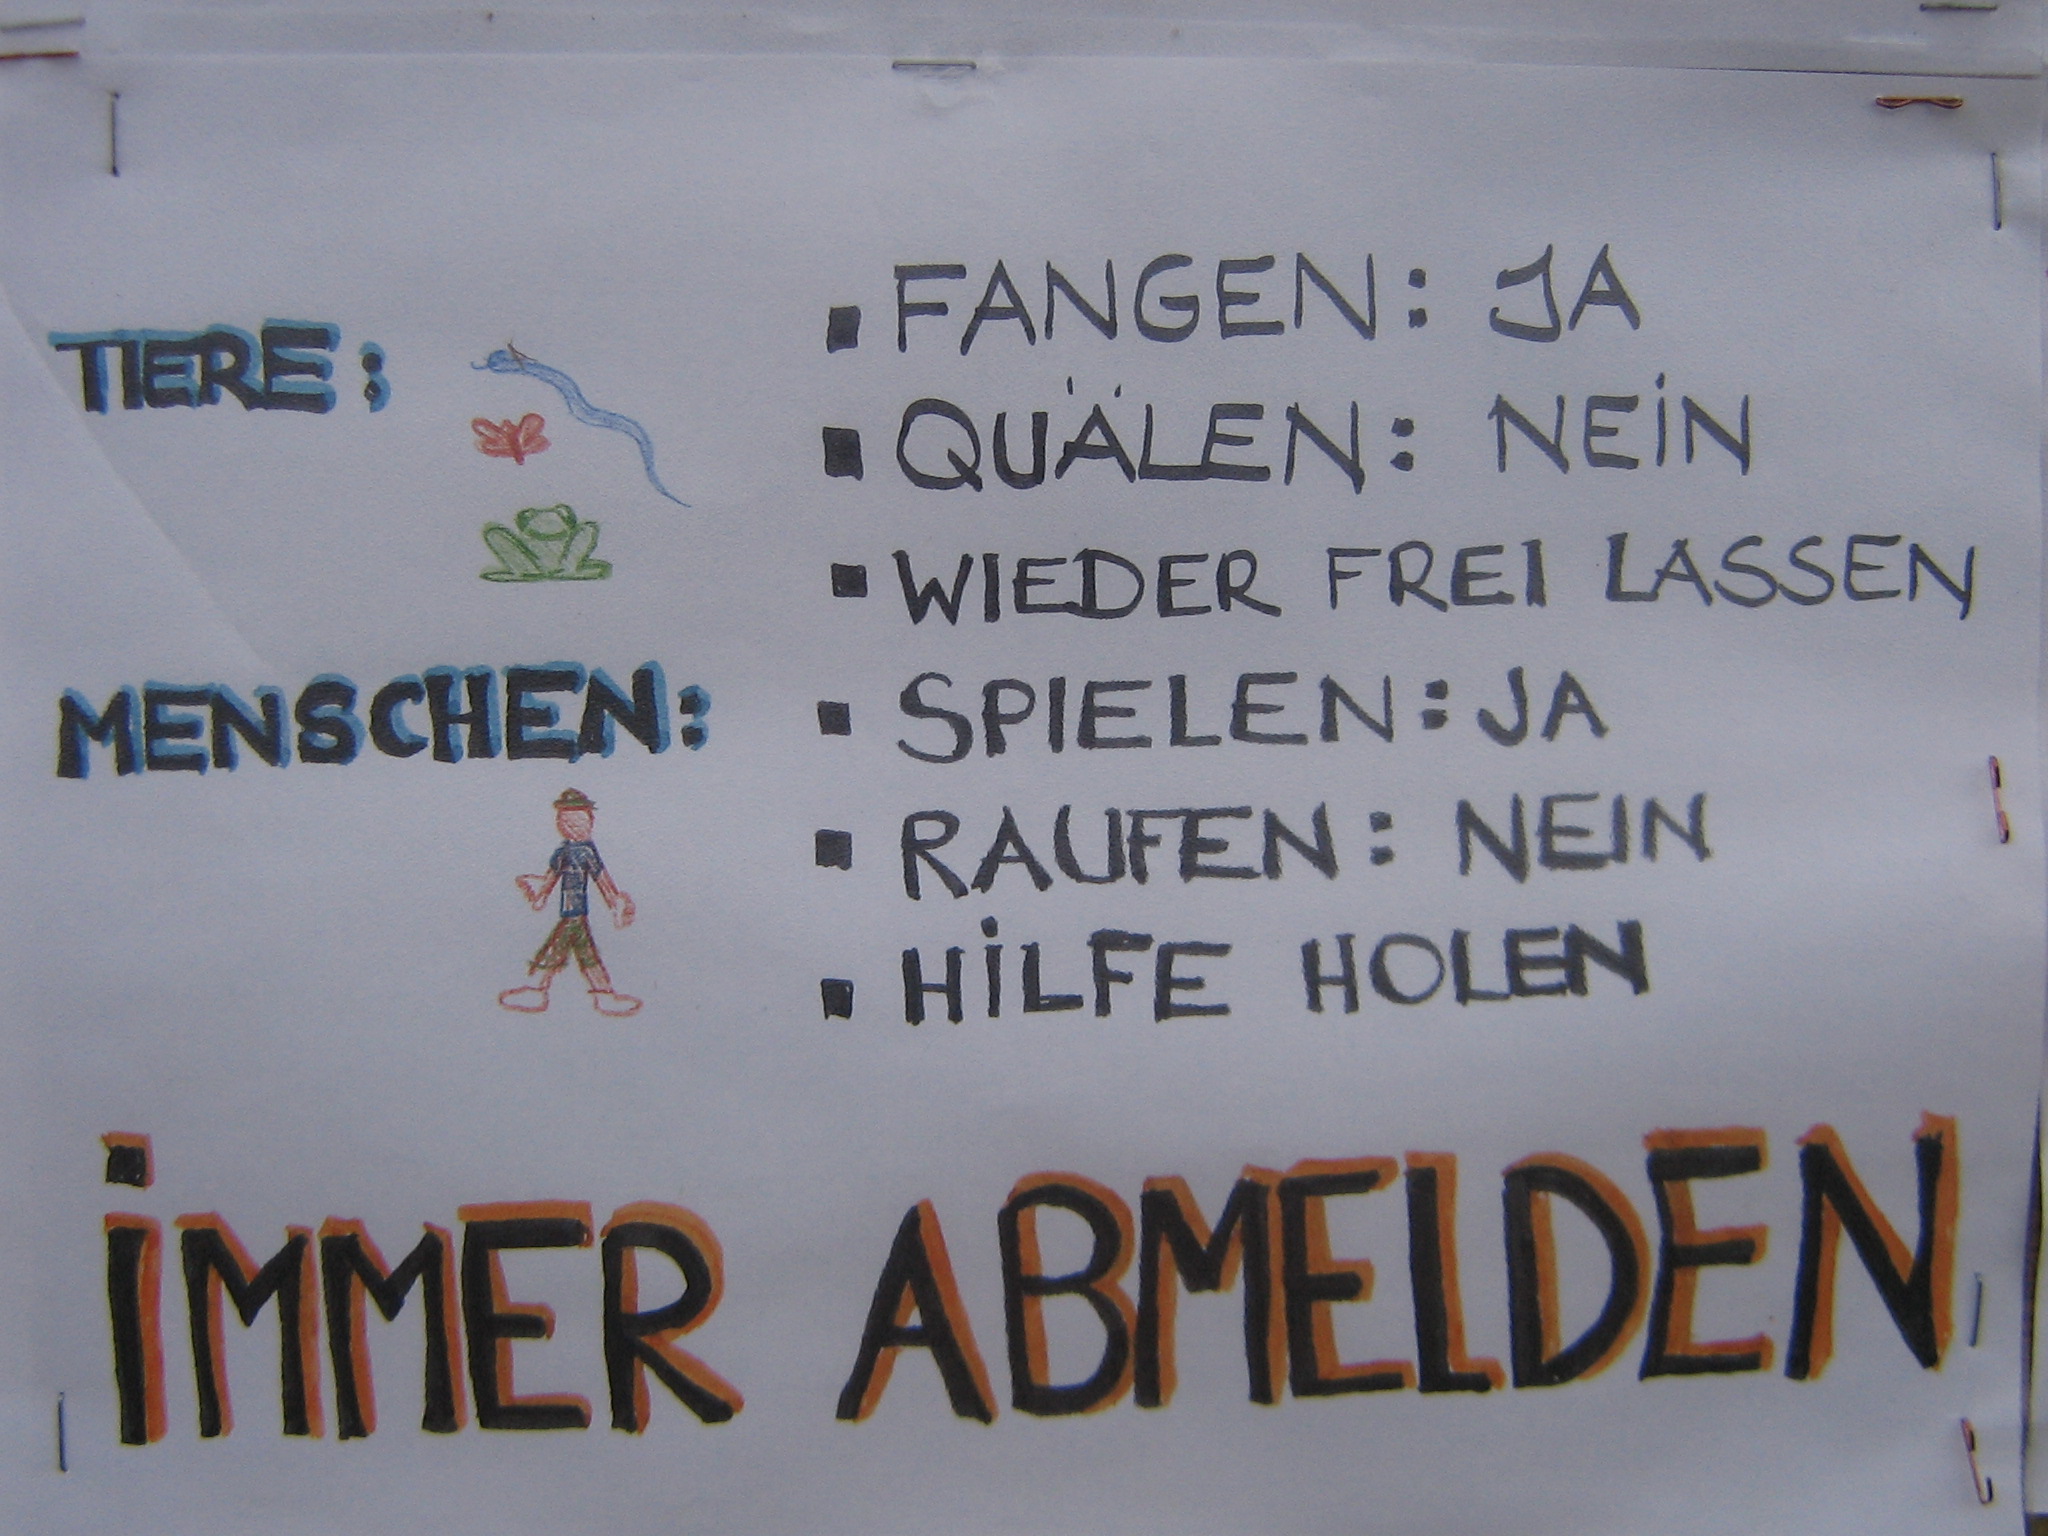 TIERE:
▪ FANGEN: JA
▪ QUÄLEN: NEIN
▪ WIEDER FREI LASSEN
MENSCHEN:
▪ SPIELEN: JA
▪ RAUFEN: NEIN
▪ HILFE HOLEN
IMMER ABMELDEN